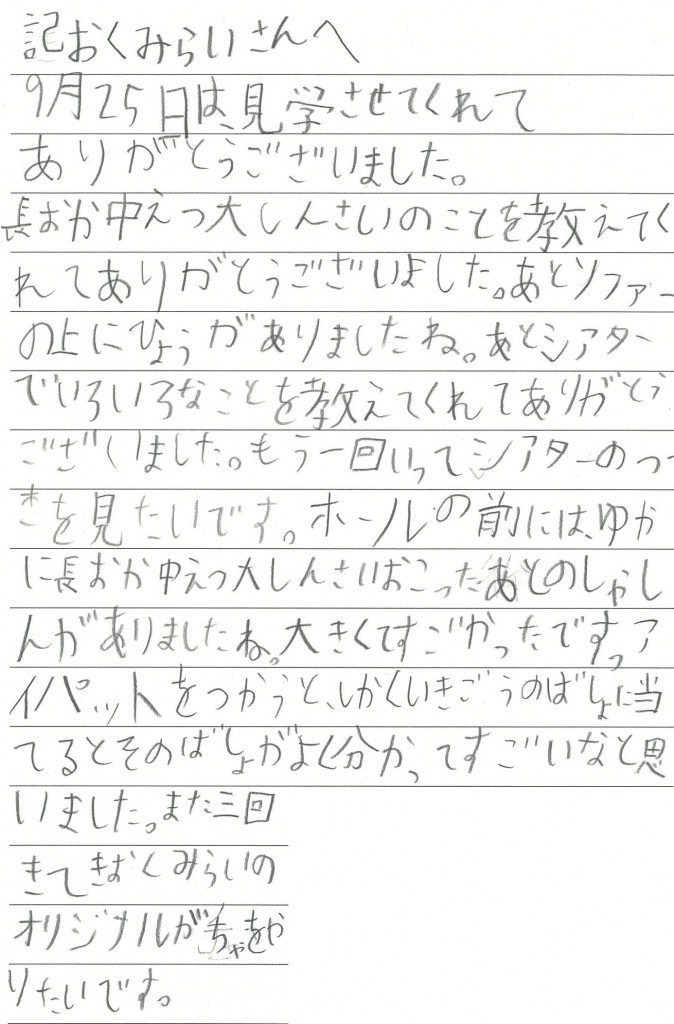 記おくみらいさんへ
9月25日は、見学させてくれて
ありがとうございました。
長おか中えつ大しんさいのことを教えてく
れてありがとうございました。あとソファー
の上にひょうがありましたね。あとシアター
でいろいろなことを教えてくれてありがとう
ございました。もう一回いってシアターのつづ
きを見たいです。ホールの前には、ゆか
に長おか中えつ大しんさいおこったあとのしゃし
んがありましたね。大きくてすごかったです。ア
イパットをつかうと、しかくいきごうのばしょに当
てるとそのばしょがよく分かってすごいなと思
いました。また三回
きてきおくみらいの
オリジナルがちゃをや
りたいです。